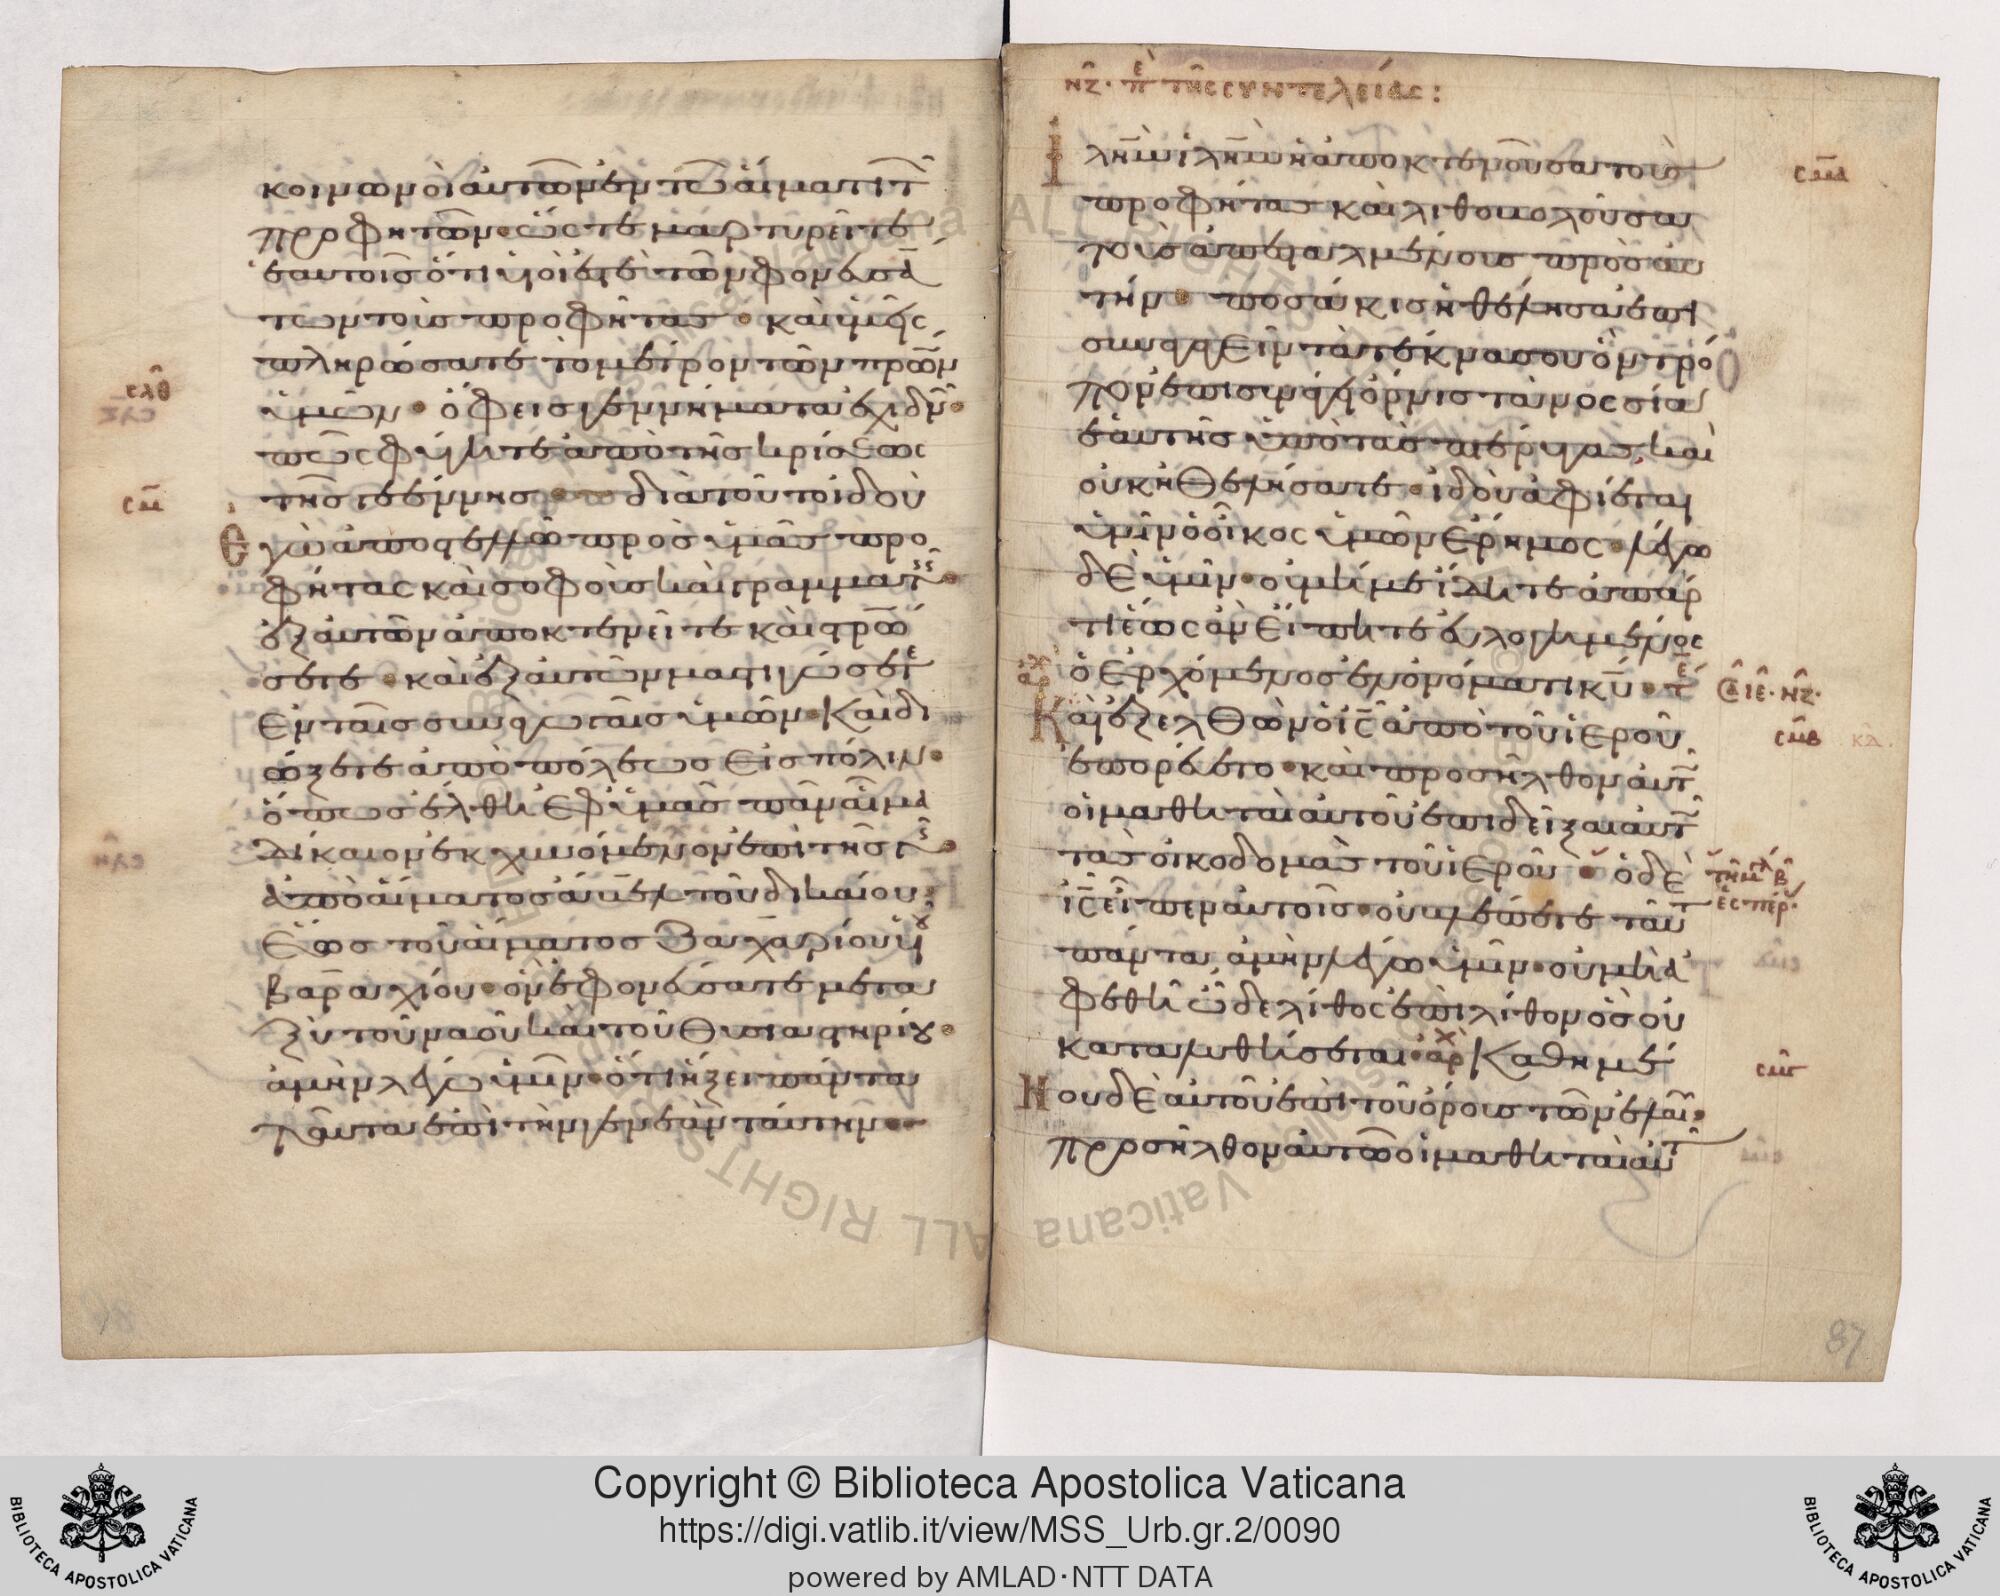 κοινωνοὶ αὐτῶν ἐν τῶ αἵματι τῶ̂
προφητῶν· ὥστε μαρτυρεῖτε
ἑαυτοῖς ὅτι υἱοί ἐστὲ τῶν φονευσά
των τοὺς προφήτας· καὶ ὑμεῖς
πληρώσατε τὸ μέτρον τῶν πρῶν
ὑμῶν· ὄφεις γεννήματα ἐχιδν̑·
πῶς φύγητε ἀπὸ τῆς κρίσεως
τῆς γεέννης· διὰ τοῦτο ἰδοὺ
ἐγὼ ἀποστέλλω πρὸς ὑμᾶς προ
φήτας καὶ σοφοὺς καὶ γραμματ̑·
ἐξ αὐτῶν ἀποκτενεῖτε καὶ στρω̅
σετε· καὶ ἐξ αὐτῶν μαστιγώσετε
ἐν ταῖς συναγωγαῖς ὑμῶν· καὶ δι
ώξετε ἀπὸ πόλεως εἰς πόλιν·
ὅπως ἔλθη ἐφ ὑμᾶς πᾶν αἷμα
δίκαιον ἐκχυνόμενον ἐπὶ τῆς γῆς·
ἀπὸ αἵματος ἄβελ τοῦ δικαίου·
ἕως τοῦ αἵματος ζαχαρίου υἱοῦ
βαραχίου· ὃν ἐφονεύσατε μετα
ξὺ τοῦ ναοῦ καὶ τοῦ θυσιαστηρίου·
ἀμὴν λέγω ὑμῖν· ὅτι ἥξει πάντα
ταῦτα ἐπὶ τὴν γενεὰν ταύτην·
σλθ
σμ
νζ· πε τῆς συντελείας:
ἱλη̅μ ἱλη̅μ ἡ ἀποκτενοῦσα τοὺς
προφήτας καὶ λιθοβολοῦσα
τοὺς ἀπεσταλμένους πρὸς αὐ
τήν· ποσάκις ἠθέλησα ἐπι
συναγαγεῖν τὰ τέκνα σου ὃν τρό
πον ἐπισυνάγει ὄρνις τὰ νοσσία
ἑαυτῆς ὑπὸ τὰς πτέρυγας, καὶ
οὐκ ἠθελήσατε· ἰδοὺ ἀφίεται
ὑμῖν ὁ οἶκος ὑμῶν ἔρημος· λέγω
δὲ ὑμῖν· οὐ μή με ἴδητε ἀπάρ
τι ἕως ἂν εἴπητε εὐλογημένος
ὁ ἐρχόμενος ἐν ὀνόματι κ̅υ· τε
Καὶ ἐξελθὼν ὁ ι̅ς ἀπὸ τοῦ ἱεροῦ
ἐπορεύετο· καὶ προσῆλθον αὐτ̑
οἱ μαθηταὶ αὐτοῦ ἐπιδεῖξαι αὐτ̑
τὰς οἰκοδομὰς τοῦ ἱεροῦ· ὁ δὲ
ι̅ς εἶπεν αὐτοῖς· οὐ βλέπετε ταῦτ
πάντα, ἀμὴν λέγω ὑμῖν· οὐ μὴ ἀ
φεθῆ ὧδε λίθος ἐπὶ λίθον ὃς οὐ
καταλυθήσεται· αρχ Καθημέ
νου δὲ αὐτοῦ ἐπὶ τοῦ ὄρους τῶν ἐλαι̑·
προσῆλθον αὐτῶ οἱ μαθηταὶ αὐτ̑
σμα
σμβ
σμγ
87
Copyright © Biblioteca Apostolica Vaticana
https://digi.vatlib.it/view/MSS_Urb.gr.2/0090
powered by AMLAD·NTT DATA
BIBLIOTECA APOSTOLICA VATICANA
BIBLIOTECA APOSTOLICA VATICANA